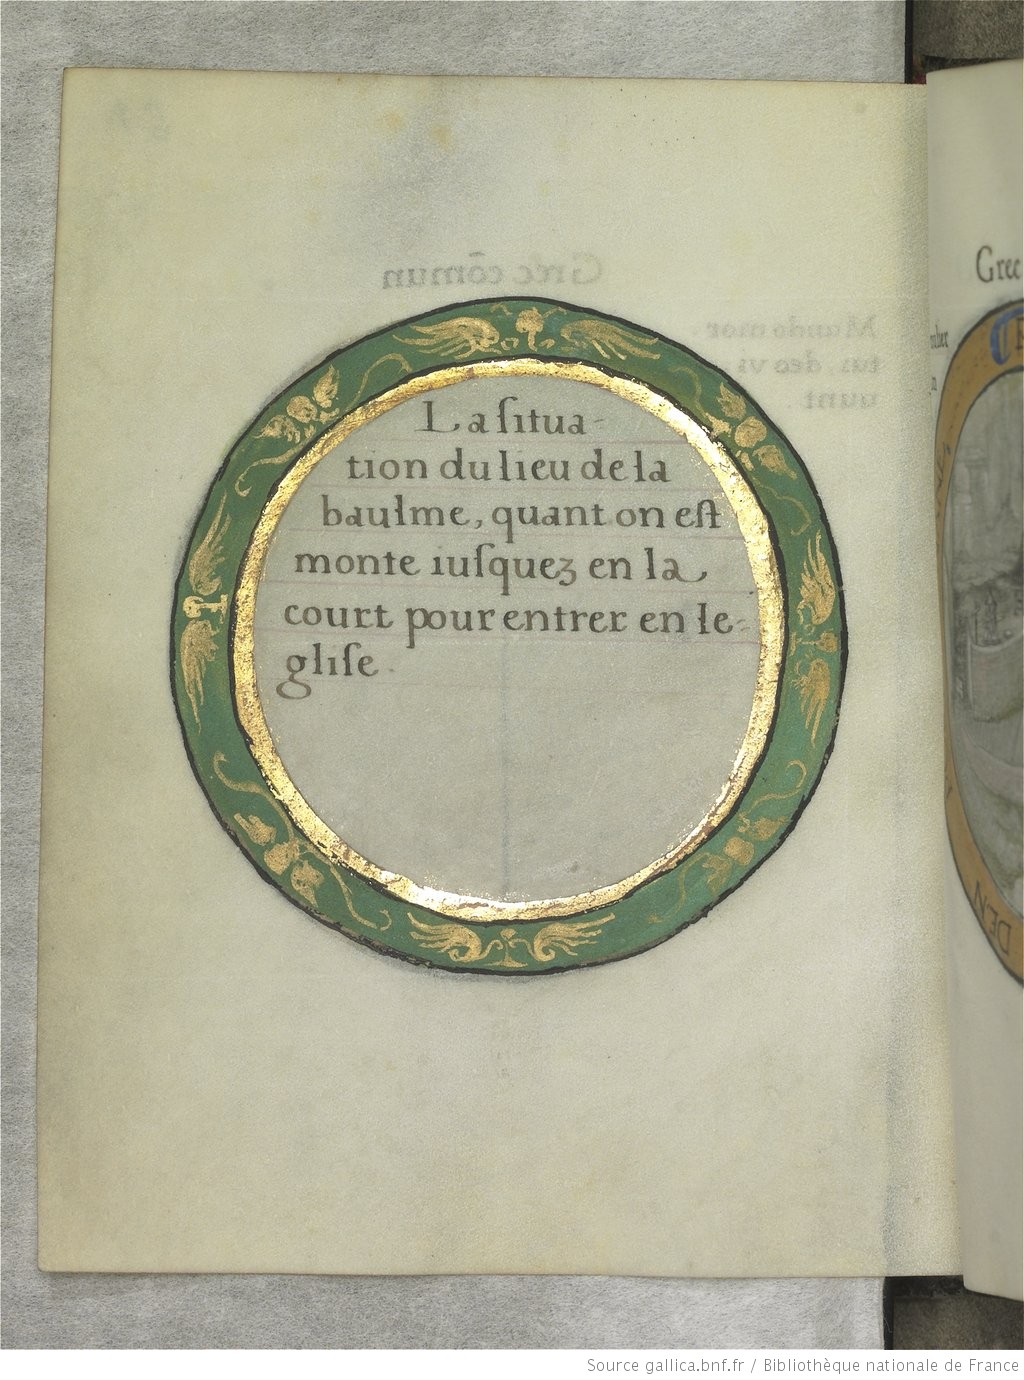 Grec cõmun
Mundo mor
tui, deo vi
uunt.
La ſitua-
tion du lieu de la
baulme, quant on eſt
monte iuſquez en la
court pour entrer en le-
gliſe.
Grec
DEN
Source gallica.bnf.fr / Bibliothèque nationale de France